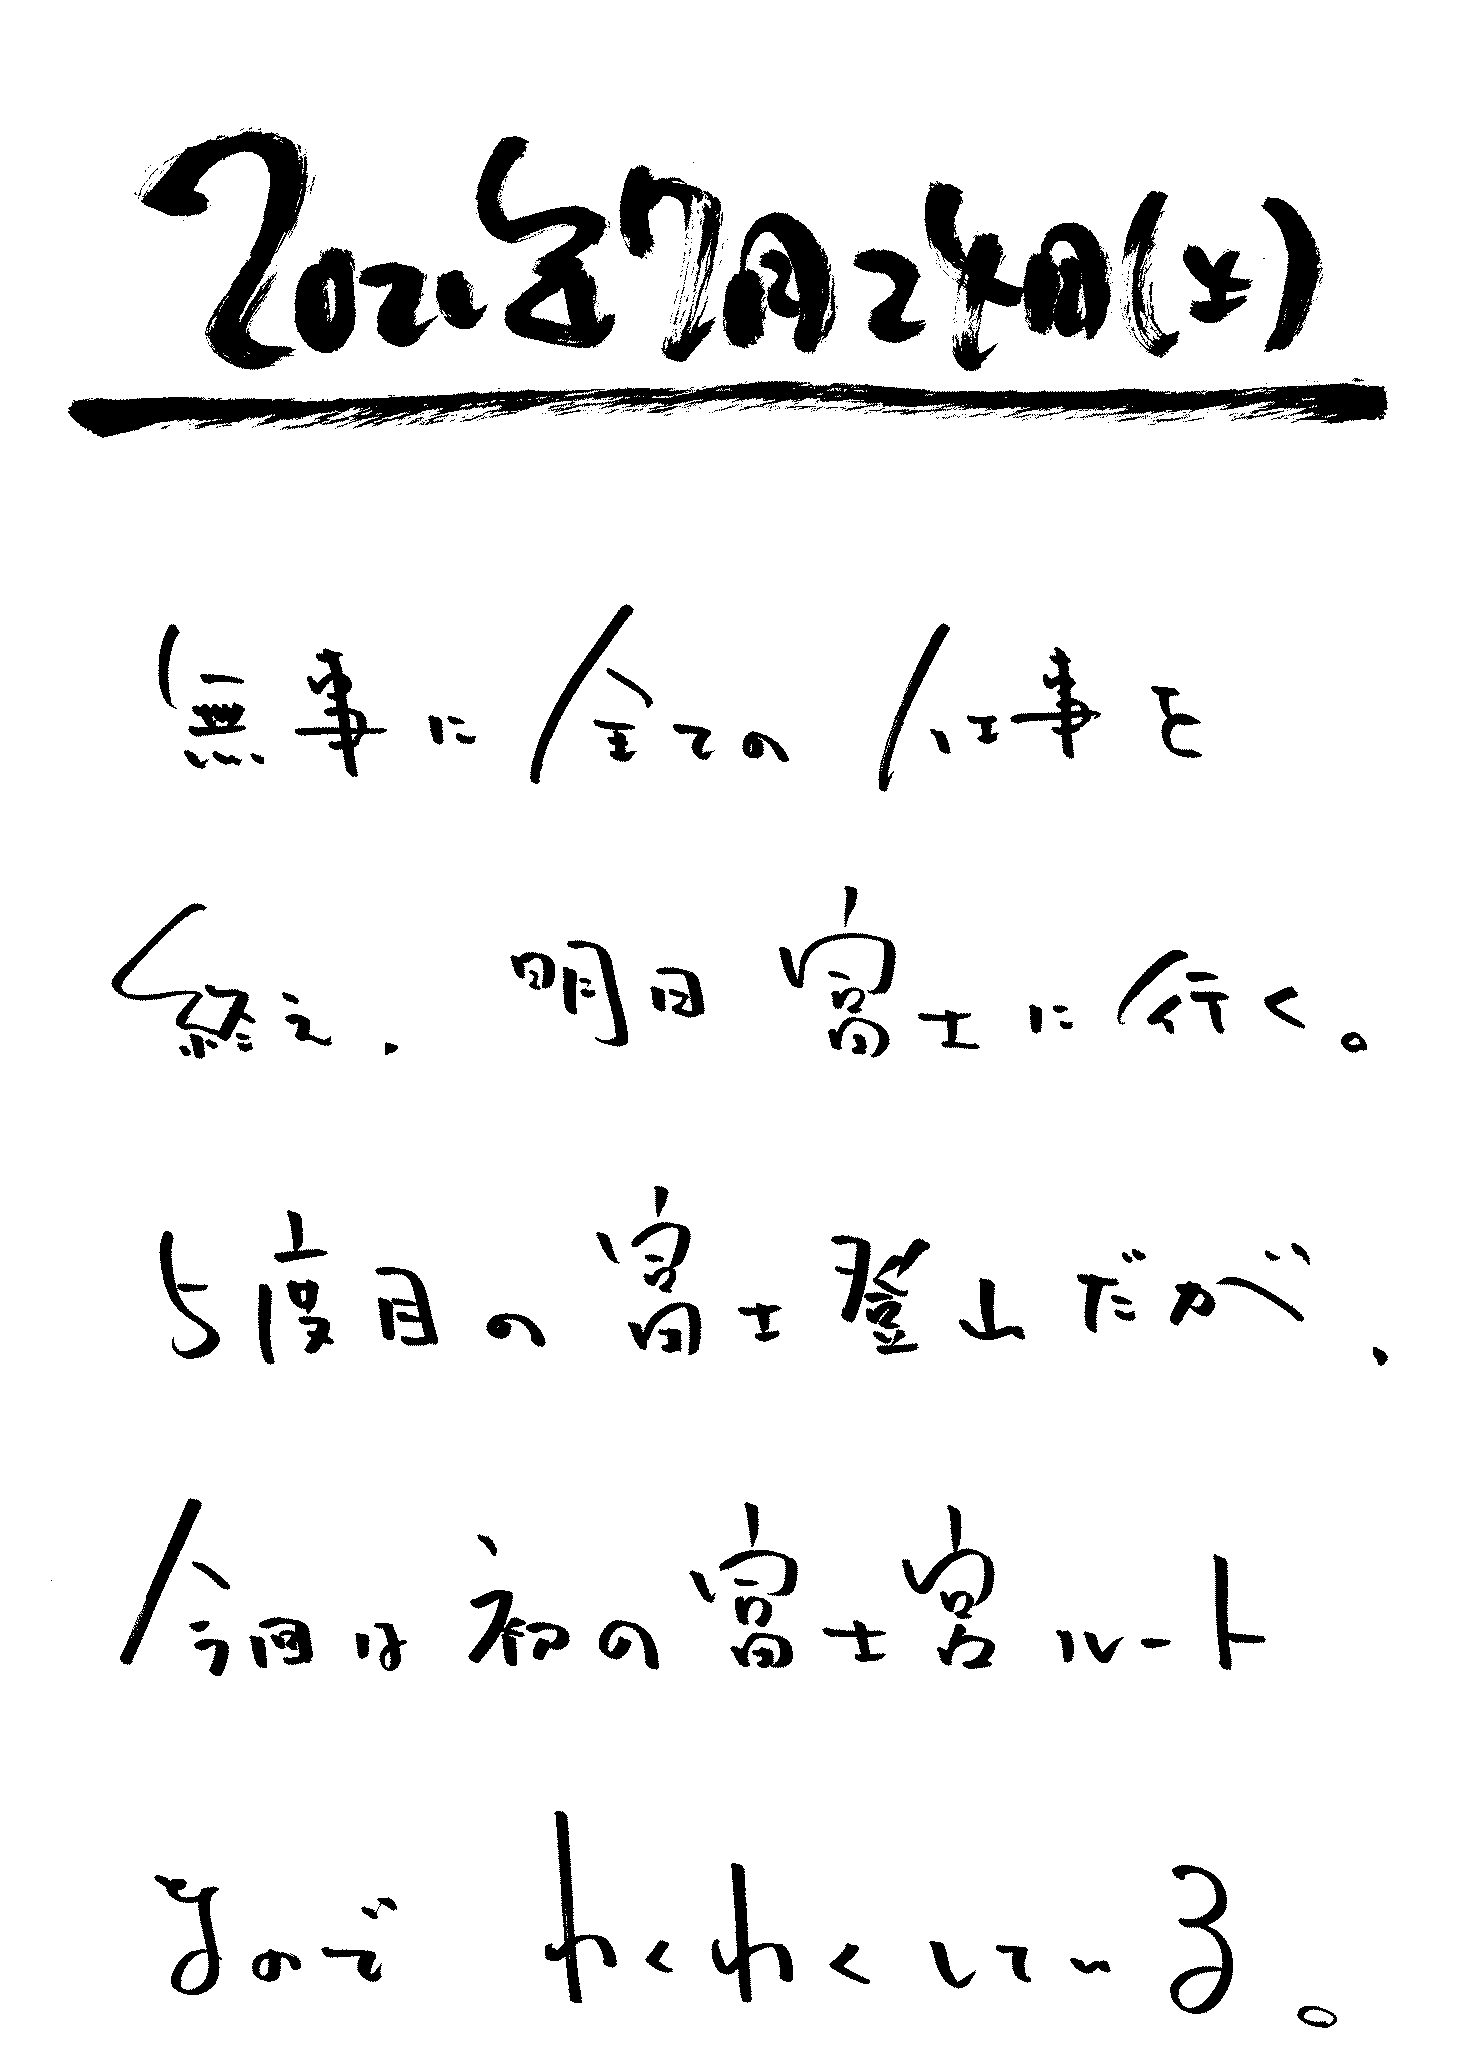 2021年7月24日(土)
無事に全ての仕事を
終え、明日富士に行く。
5度目の富士登山だが、
今回は初の富士宮ルート
なのでわくわくしている。